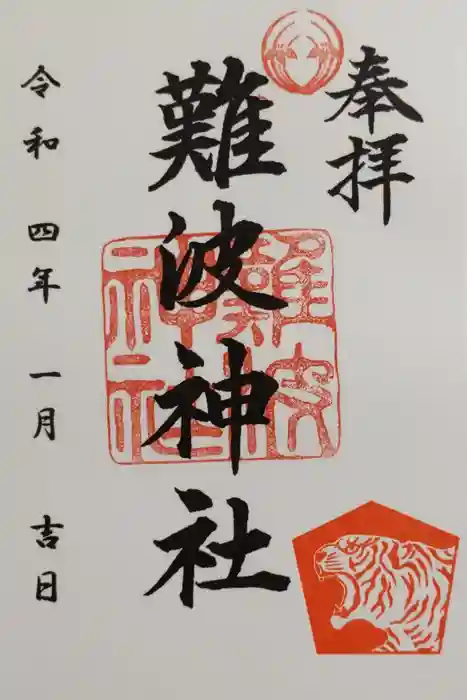 奉拝
難波神社
難波
神社
令和四年一月吉日